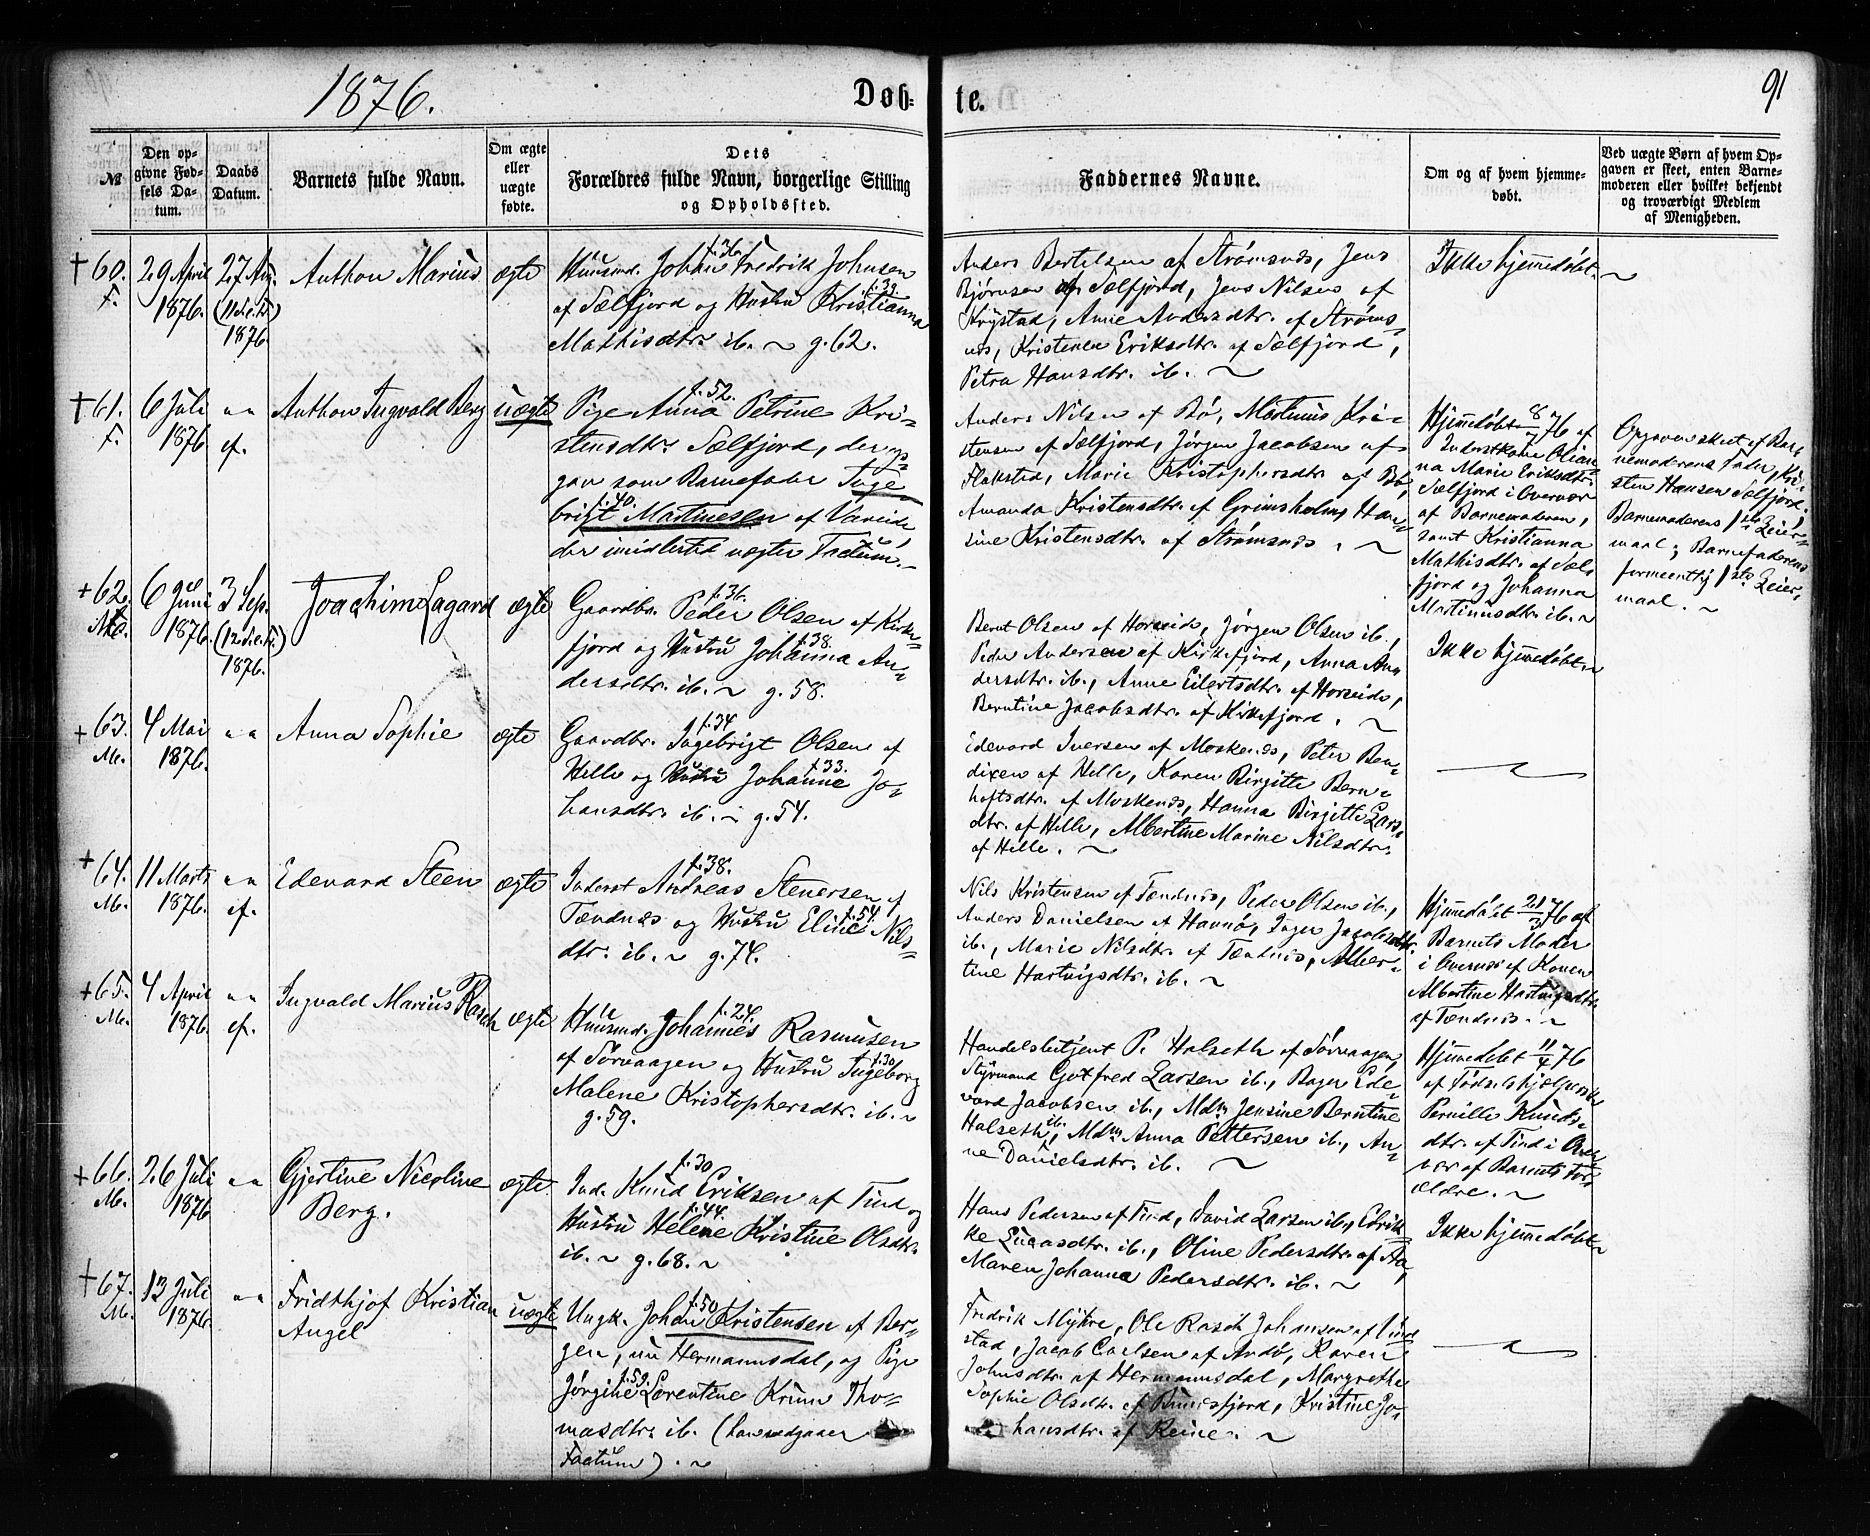 1876.
Døb-
te.
91
№
Den op-
givne Fød-
sels Da-
tum.
Daabs
Datum.
Barnets fulde Navn.
Om ægte
eller
uægte
fødte.
Dets
Forældres fulde Navn, borgerlige Stilling
og Opholdssted.
Faddernes Navne.
Om og af hvem hjemme-
døbt.
Ved uægte Børn af hvem Op-
gaven er skeet, enten Barne-
moderen eller hvilket bekjendt
og troværdigt Medlem
af Menigheden.
+ 60.
F.
29 April
1876.
27 Aug.
(11 S. e. Tr.)
1876.
Anthon Marius
ægte
f. 36
Huusmd. Johan Fredrik Johnsen
f. 33.
af Sælfjord og Hustru Kristianna
Mathisdtr. ib. ~ g. 62.
Anders Bertelsen af Strømsnæs, Jens
Bjørnsen af Sælfjord, Jens Nilsen af
Krystad, Anne Andersdtr. af Strøms-
næs, Kristence Eriksdtr. af Sælfjord,
Petra Hansdtr. ib. ~
Ikke hjemmedøbt. ~
+ 61.
F.
6 Juli
1876
" "
ef.
Anthon Ingvald Berg
uægte
f. 52.
Pige Anna Petrine Kri-
stensdtr. Sælfjord, der op-
gav som Barnefader Inge-
f. 40.
brigt Martinesen af Vareide,
der imidlertid nægter Factum. ~
Anders Nilsen af Bø, Martinus Kri-
stensen af Sælfjord, Jørgen Jacobsen af
Flakstad, Marie Kristophersdtr. af Bø,
Amanda Kristensdtr. af Grimsholm, Han-
sine Kristensdtr. af Strømsnæs. ~
Hjemmedøbt 8/7 76 af
Inderstkone Olian-
na Marie Eriksdtr.
Sælfjord i Overvær
af Barnemoderen,
samt Kristianna
Mathisdtr. af Sæl-
fjord og Johanna
Martinusdtr. ib. ~
Opgaven skeet af Bar-
nemoderens Fader, Kri-
sten Hansen Sælfjord.
Barnemoderens 1ste Leier-
maal; Barnefaderens
formeentlig 1ste Leier-
maal. ~
+ 62.
M.
6 Juni
1876.
3 Sep.
(12 S. e. Tr.)
1876.
Joachim Lagard
ægte
f. 31.
Gaardbr. Peder Olsen af Kirke-
f. 38.
fjord og Hustru Johanna An-
dersdtr. ib. ~ g. 58.
Bernt Olsen af Horseide, Jørgen Olsen ib.,
Peder Andersen af Kirkefjord, Anna An-
dersdtr. ib., Anne Eilertsdtr. af Horseide,
Berntine Jacobsdtr. af Kirkefjord. ~
Ikke hjemmedøbt ~
+ 63.
M.
4 Mai
1876.
" "
Anna Sophie
ægte
f. 34
Gaardbr. Ingebrigt Olsen af
f. 33.
Helle og Hustru Johanne Jo-
hansdtr. ib. ~ g. 54.
Edevard Iversen af Moskenæs, Peter Ben-
dixen af Helle, Karen Birgitte Bern-
hoftsdtr. af Moskenæs, Hanna Birgitte Lars-
dtr. af Helle, Albertine Marine Nilsdtr.
af Helle. ~
+ 64.
M.
11 Marts
1876.
" "
ef.
Edevard Steen
ægte
f. 38.
Inderst Andreas Stenersen af
f. 54.
Tændnæs og Hustru Eline Nils-
dtr. ib. ~ g. 74.
Nils Kristensen af Tændnæs, Peder Olsen ib.,
Anders Danielsen af Havnø, Inger Jacobsdtr.
ib., Marie Nilsdtr. af Tændnæs, Alber-
tine Hartvigsdtr. ib. ~
Hjemmedøbt 21/3 76 af
Barnets Moder
i Overvær af Konen
Albertine Hartvigsdtr.
af Tændnæs. ~
+ 65.
M.
4 April
1876.
" "
ef.
Ingvald Marius Rasch
ægte
f. 24.
Huusmd. Johannes Rasmusen
f. 30
af Sørvaagen og Hustru Ingeborg
Malene Kristophersdtr. ib. ~
g. 59.
Handelsbetjent P. Halseth af Sørvaagen,
Styrmand Gotfred Larsen ib., Bager Ede-
vard Jacobsen ib., Mdm Jensine Berntine
Halseth ib., Mdm Anna Pettersen ib., An-
ne Danielsdtr. ib. ~
Hjemmedøbt 11/4 76
af Fødselshjælperske
Pernille Knuds-
dtr. af Tind i Over-
vær af Barnets For-
ældre. ~
+ 66.
M.
26 Juli
1876
" "
Gjertine Nicoline
Berg.
ægte.
f. 30
Ind. Knud Eriksen af Tind og
f. 44.
Hustru Helene Kristine Olsdtr.
ib. ~ g. 68. ~
Hans Pedersen af Tind, David Larsen ib., Edrik-
ke Lucasdtr. ib., Oline Pedersdtr. af Aa,
Maren Johanna Pedersdtr. ib. ~
Ikke hjemmedøbt ~
+ 67.
M.
13 Juli
1876.
" "
Fridthjof Kristian
Angel
uægte
f. 50
Ungk. Johan Kristensen af Ber-
gen, nu Hermannsdal, og Pige
f. 59.
Jørgine Lorentine Krum Tho-
masdtr. ib. (han vedgaaer
Factum). ~
Fredrik Myhre, Ole Rasch Johansen af
stad, Jacob Carlsen af Andø, Karen
Johnsdtr. af Hermannsdal, Margrethe
Sophie Olsdtr. af Bunesfjord, Kristine Jo-
hansdtr. af Reine. ~